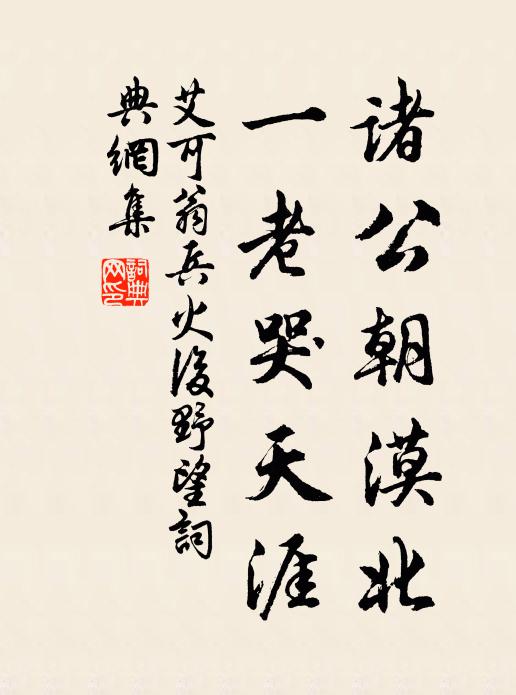 諸公朝漠北
一老哭天涯
艾可翁兵火後野望詞
典網集
詞典
网印